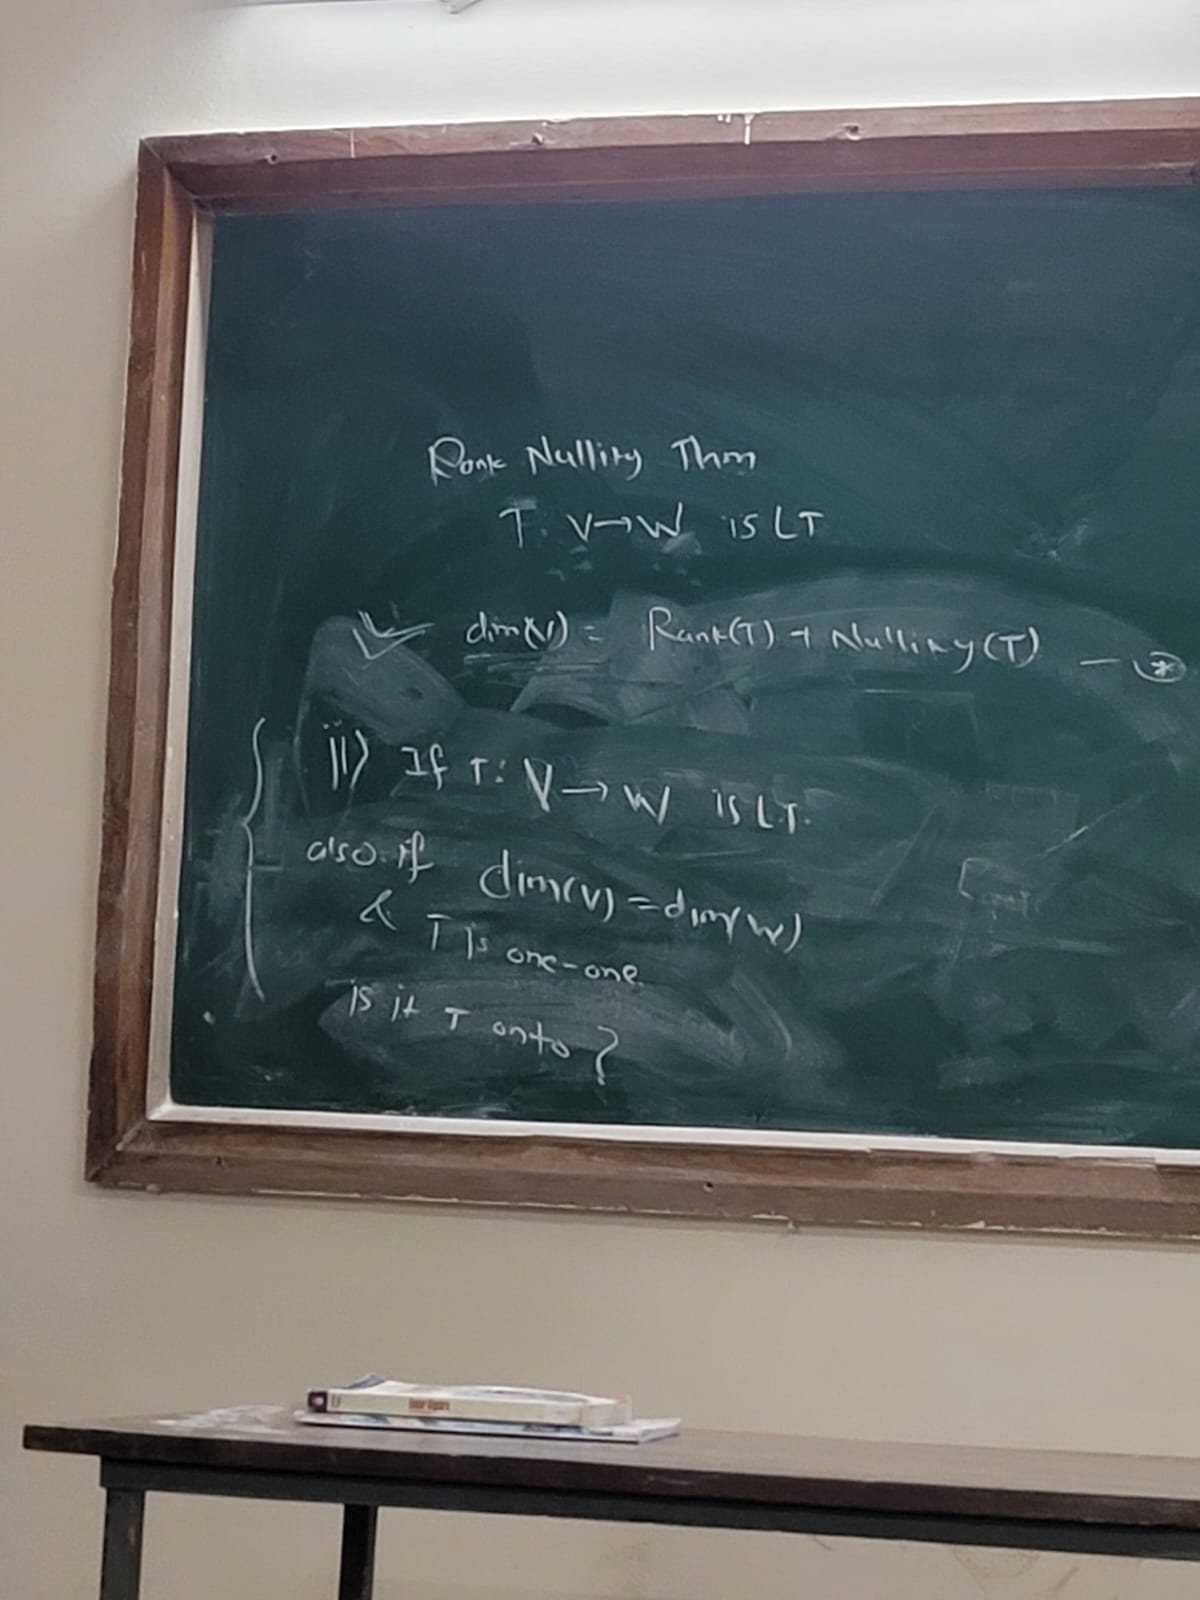 Rank Nullity Thm
T: V→W is LT
dim(V) = Rank(T) + Nullity(T) — *
ii) If T: V→W is LT.
also if dim(V) = dim(W)
& T is one-one.
is it T onto?
Linear Algebra